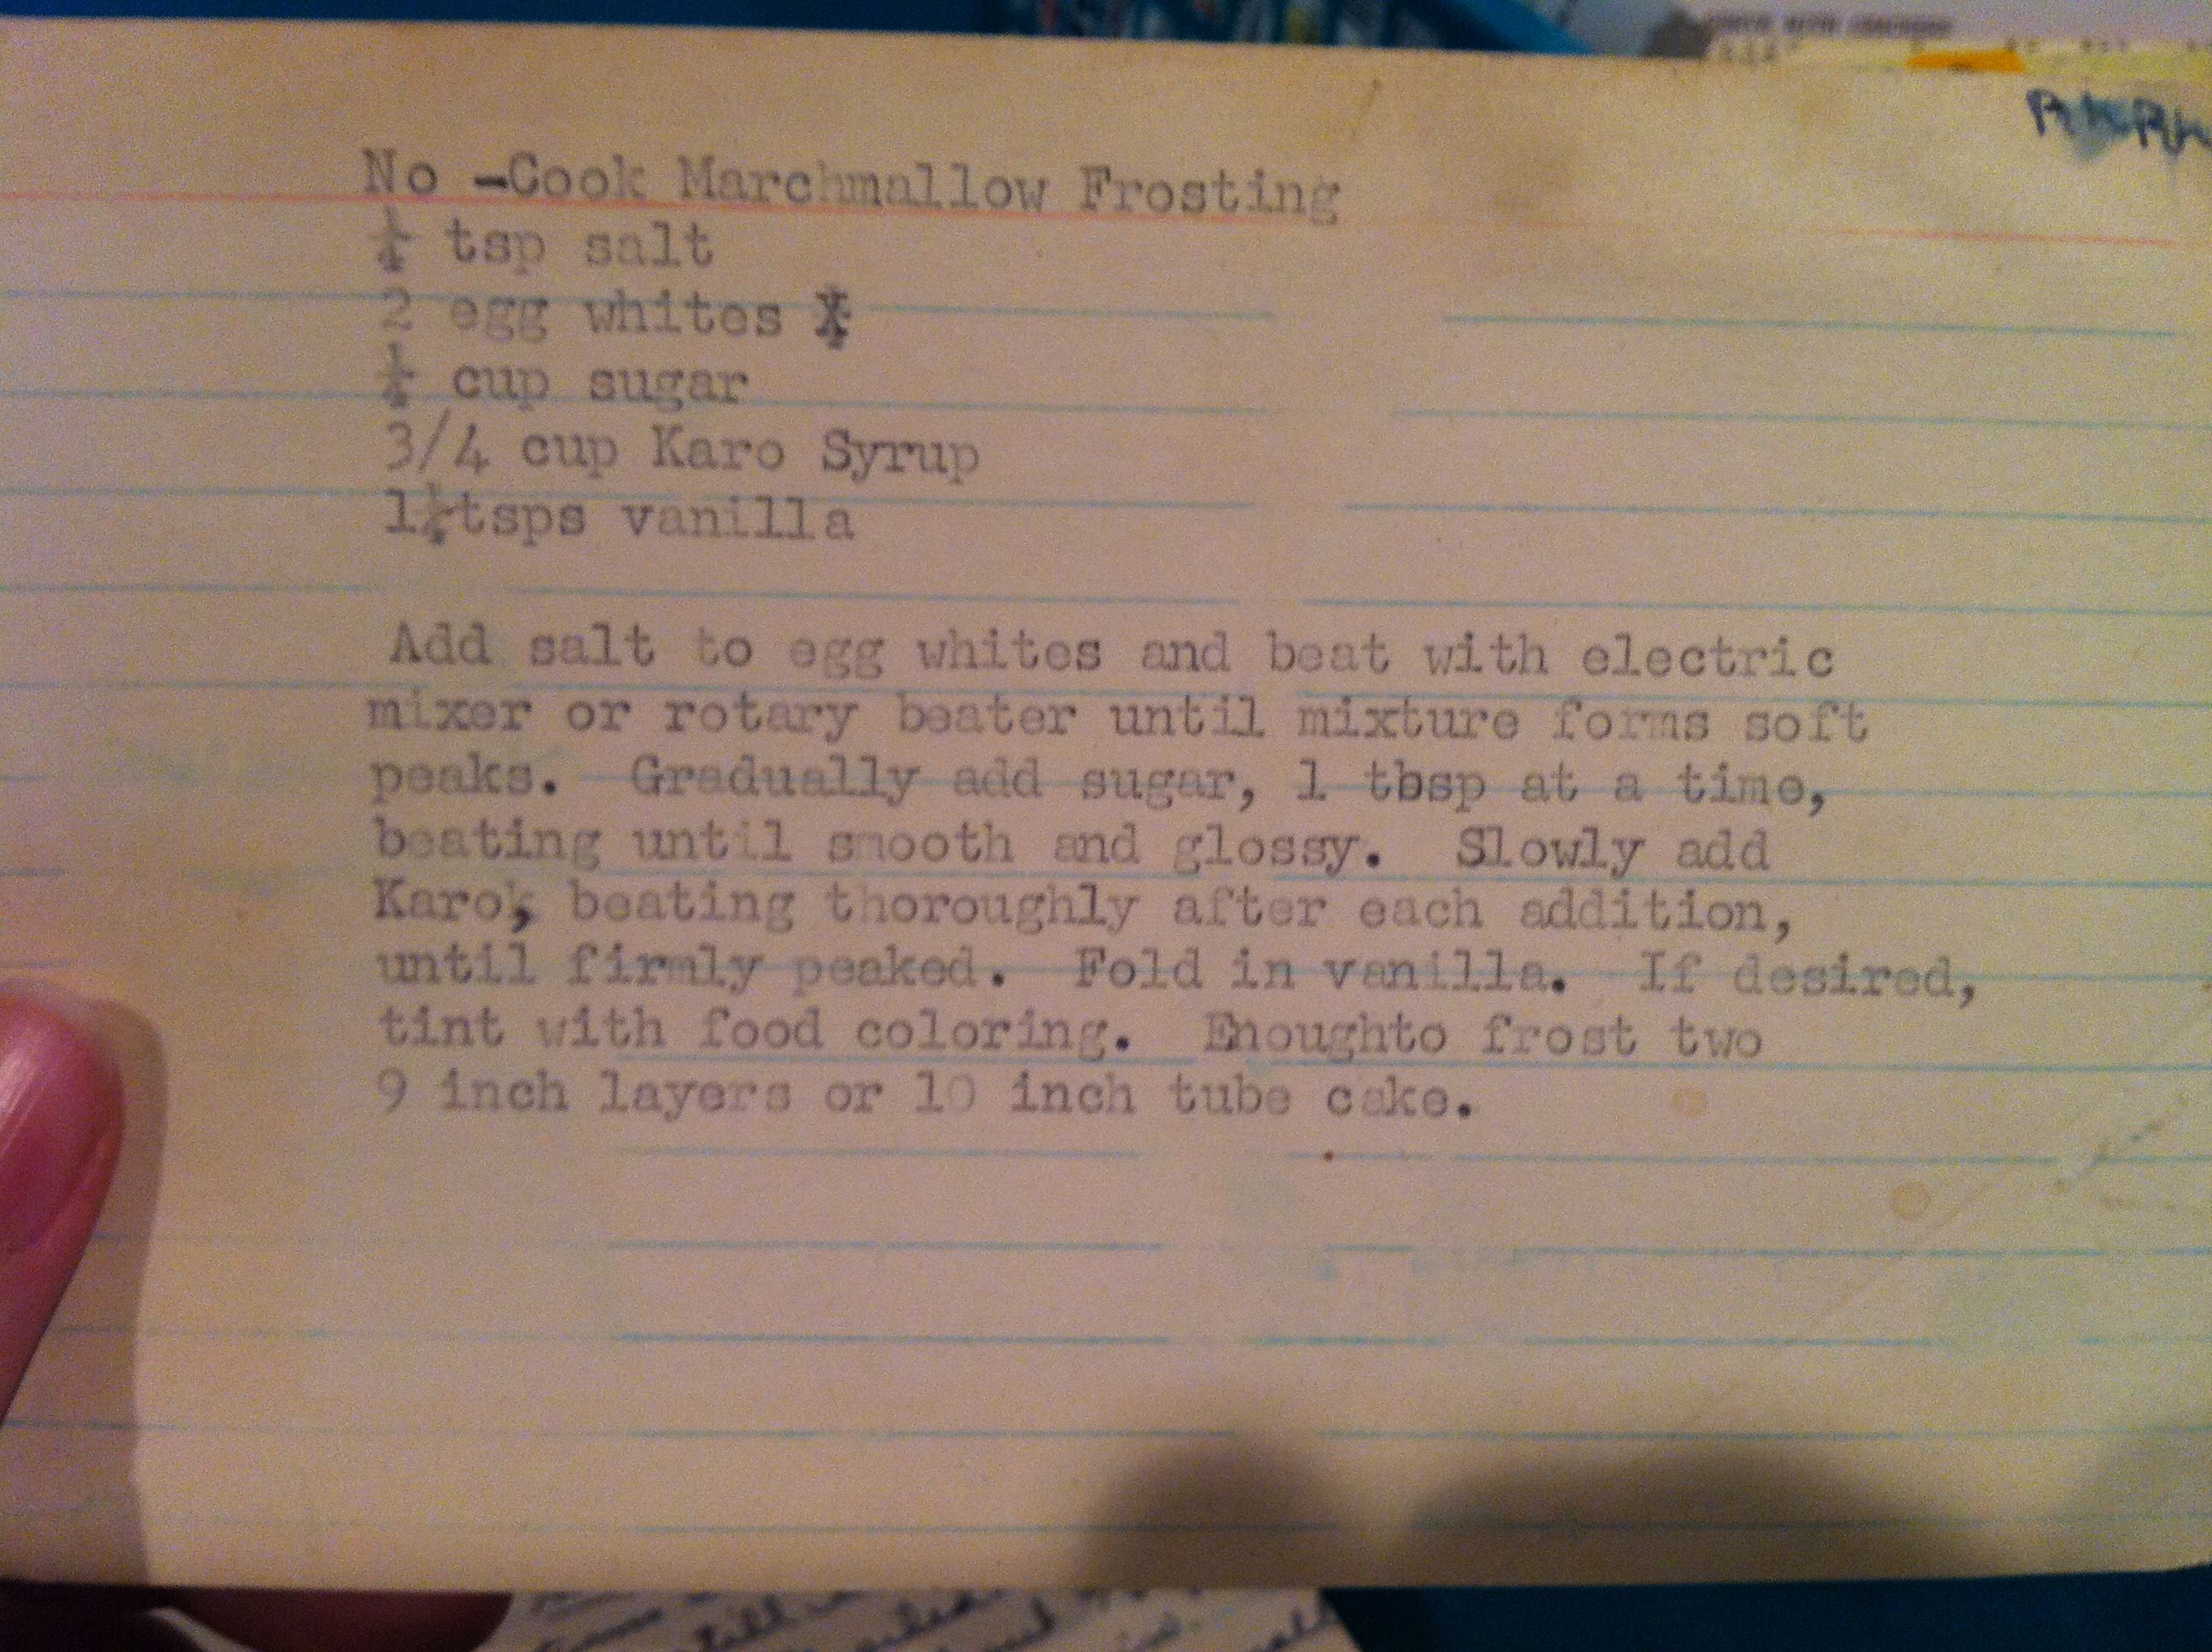 No -Cook Marchmallow Frosting
¼ tsp salt
2 egg whites
cup sugar
3/4 cup Karo Syrup
1¼tsps vanilla
Add salt to egg whites and beat with electric
mixer or rotary beater until mixture forms soft
peaks. Gradually add sugar, 1 tbsp at a time,
beating until smooth and glossy. Slowly add
Karo, beating thoroughly after each addition,
until firmly peaked. Fold in vanilla. If desired,
tint with food coloring. Enoughto frost two
9 inch layers or 10 inch tube cake.